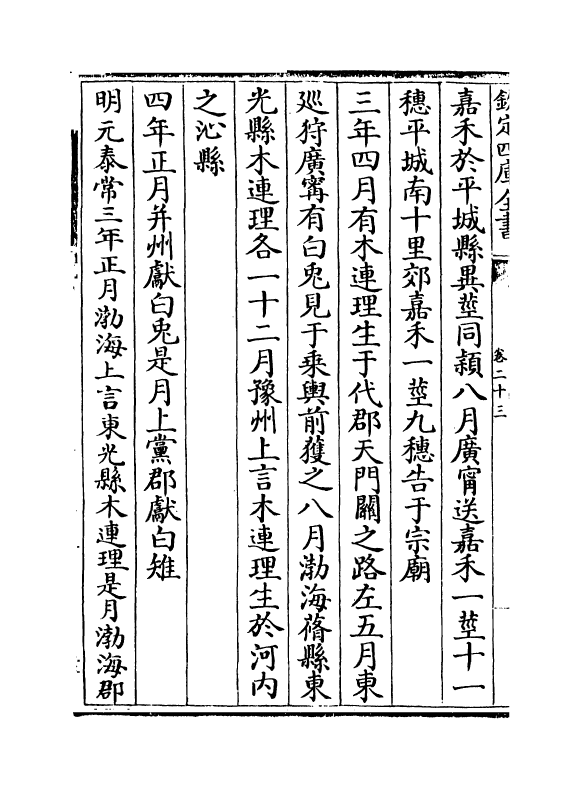 欽定四庫全書
卷二十三
嘉禾於平城縣異莖同穎八月廣甯送嘉禾一莖十一
穗平城南十里郊嘉禾一莖九穗告于宗廟
三年四月有木連理生于代郡天門關之路左五月東
廵狩廣甯有白兎見于乗輿前獲之八月渤海蓨縣東
光縣木連理各一十二月豫州上言木連理生於河内
之沁縣
四年正月并州獻白兎是月上黨郡獻白雉
明元泰常三年正月渤海上言東光縣木連理是月渤海郡